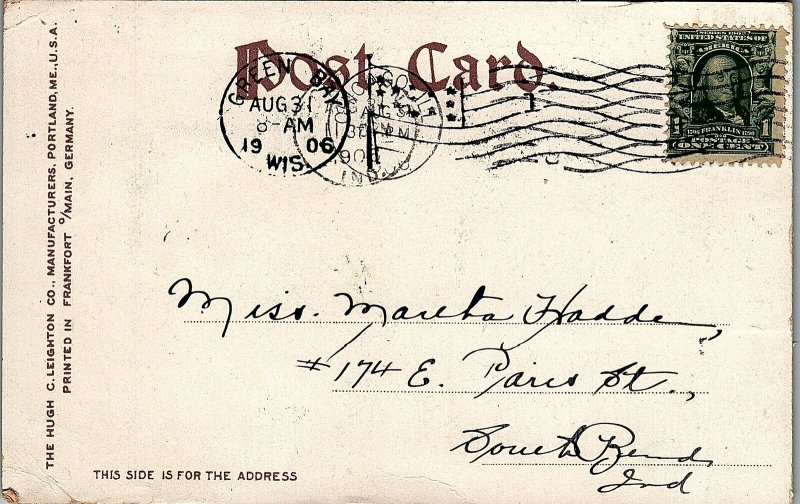 Post Card.
GREEN BAY
AUG 31
8-AM
19 06
WIS.
CHICAGO, ILL.
AUG 31
IND
SERIES 1902
UNITED STATES OF
AMERICA
1706 FRANKLIN 1790
1 1
POSTAGE
ONE CENT
Miss. Martha Hadde,
#174 E. Paris St.,
South Bend,
Ind
THIS SIDE IS FOR THE ADDRESS
THE HUGH C. LEIGHTON CO., MANUFACTURERS, PORTLAND, ME., U.S.A.
PRINTED IN FRANKFORT O/MAIN, GERMANY.